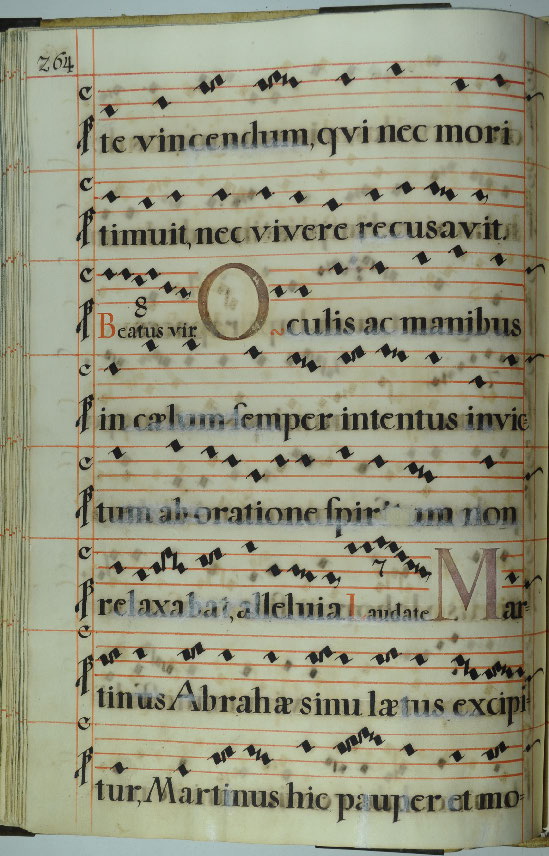 264
te vincendum, qvi nec mori
timuit, nec vivere recusavit.
8
Beatus vir Oculis ac manibus
in cælum semper intentus invic
tum ab oratione spiritum non
7
relaxabat, alleluia Laudate Mar-
tinus Abrahæ sinu lætus excipi-
tur, Martinus hic pauper et mo-